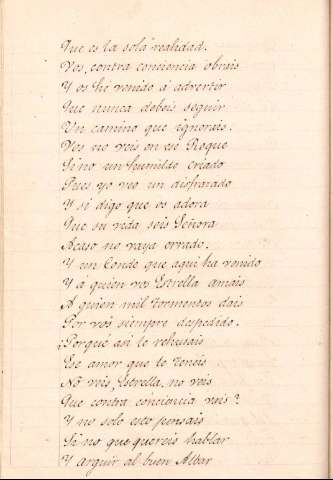 Que es la sola realidad.
Vos, contra conciencia obrais
Y os hé venido á advertir
Que nunca debeis seguir
Un camino que ignorais.
Vos no veis en ese Roque
Si no un humilde criado
Pues yo veo un disfrazado
Y si digo que os adora
Que su vida sois Señora
Acaso no vaya errado.
Y un Conde que aqui ha venido
Y a quien vos Estrella amais
A quien mil tormentos dais
Por vos siempre despedido.
¿Porque asi le rehusais
Ese amor que le teneis
No veis, Estrella, no veis
Que contra conciencia vais?
Y no solo esto pensais
Si no que quereis hablar
Y arguir al buen Albar